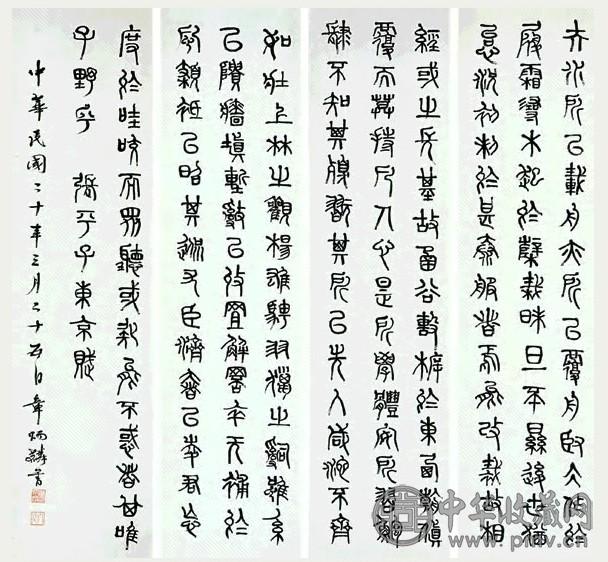 夫水所㠯載舟亦所㠯覆舟臤仌作於
履霜尋木起於蘗栽昧旦丕顯後世猶
怠況初制於甚泰服者焉能改裁故相
經或之長基故圅谷擊柝於東西朝顛
覆而莫持凡人心是所學體安所習鮑
肆不知其臰翫其所㠯先入咸池不齊
如壯上林之觀楊雄騁羽獵之詞雖系
㠯隤牆塡塹亂㠯收罝解罘卒无補於
風規祗㠯昭其愆尤臣濟奓㠯夌君忘
度於哇咬而眾聽或疑能不惑者其唯
子野乎 張平子東京賦
中華民國二十年三月二十五日章炳麟書
中华收藏网